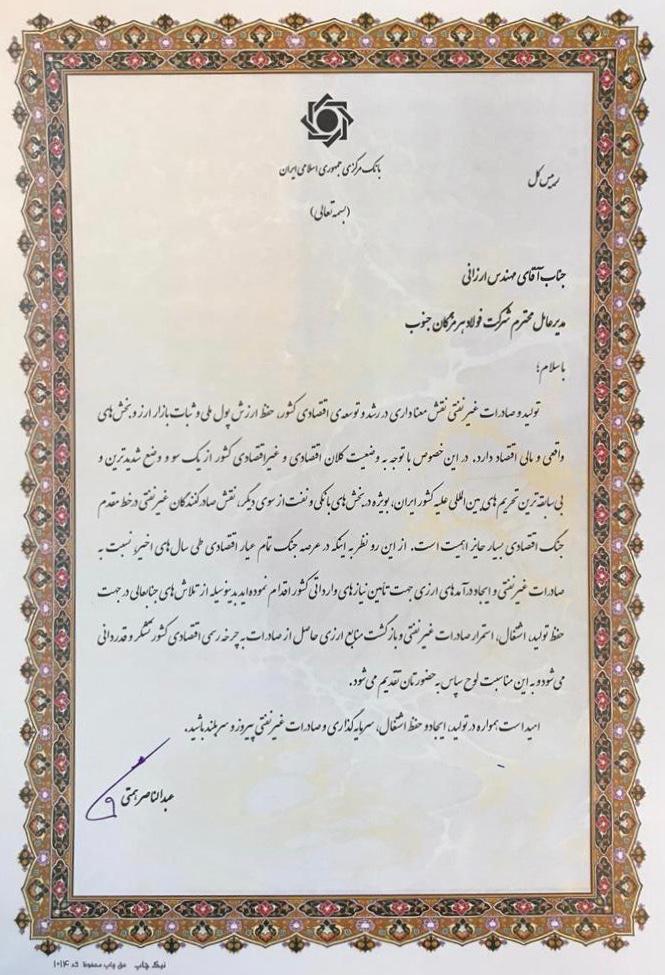 بانک مرکزی جمهوری اسلامی ایران
رییس کل
(بسمه تعالی)
جناب آقای مهندس ارزانی
مدیرعامل محترم شرکت فولاد هرمزگان جنوب
با سلام؛
تولید و صادرات غیرنفتی نقش معناداری در رشد و توسعه‌ی اقتصادی کشور، حفظ ارزش پول ملی و ثبات بازار ارز و بخش‌های
واقعی و مالی اقتصاد دارد. در این خصوص با توجه به وضعیت کلان اقتصادی و غیراقتصادی کشور از یک سو و وضع شدیدترین و
بی‌سابقه‌ترین تحریم‌های بین‌المللی علیه کشور ایران، بویژه در بخش‌های بانکی و نفت از سوی دیگر، نقش صادرکنندگان غیرنفتی در خط مقدم
جنگ اقتصادی بسیار حایز اهمیت است. از این رو نظر به اینکه در عرصه جنگ تمام عیار اقتصادی طی سال‌های اخیر، نسبت به
صادرات غیرنفتی و ایجاد درآمدهای ارزی جهت تأمین نیازهای وارداتی کشور اقدام نموده‌اید بدینوسیله از تلاش‌های جنابعالی در جهت
حفظ تولید، اشتغال، استمرار صادرات غیرنفتی و بازگشت منابع ارزی حاصل از صادرات به چرخه رسمی اقتصادی کشور تشکر و قدردانی
می‌شود و به این مناسبت لوح سپاس به حضورتان تقدیم می‌شود.
امید است همواره در تولید، ایجاد و حفظ اشتغال، سرمایه‌گذاری و صادرات غیرنفتی پیروز و سربلند باشید.
عبدالناصر همتی
نیک چاپ حق چاپ محفوظ کد ۱۰۱۴